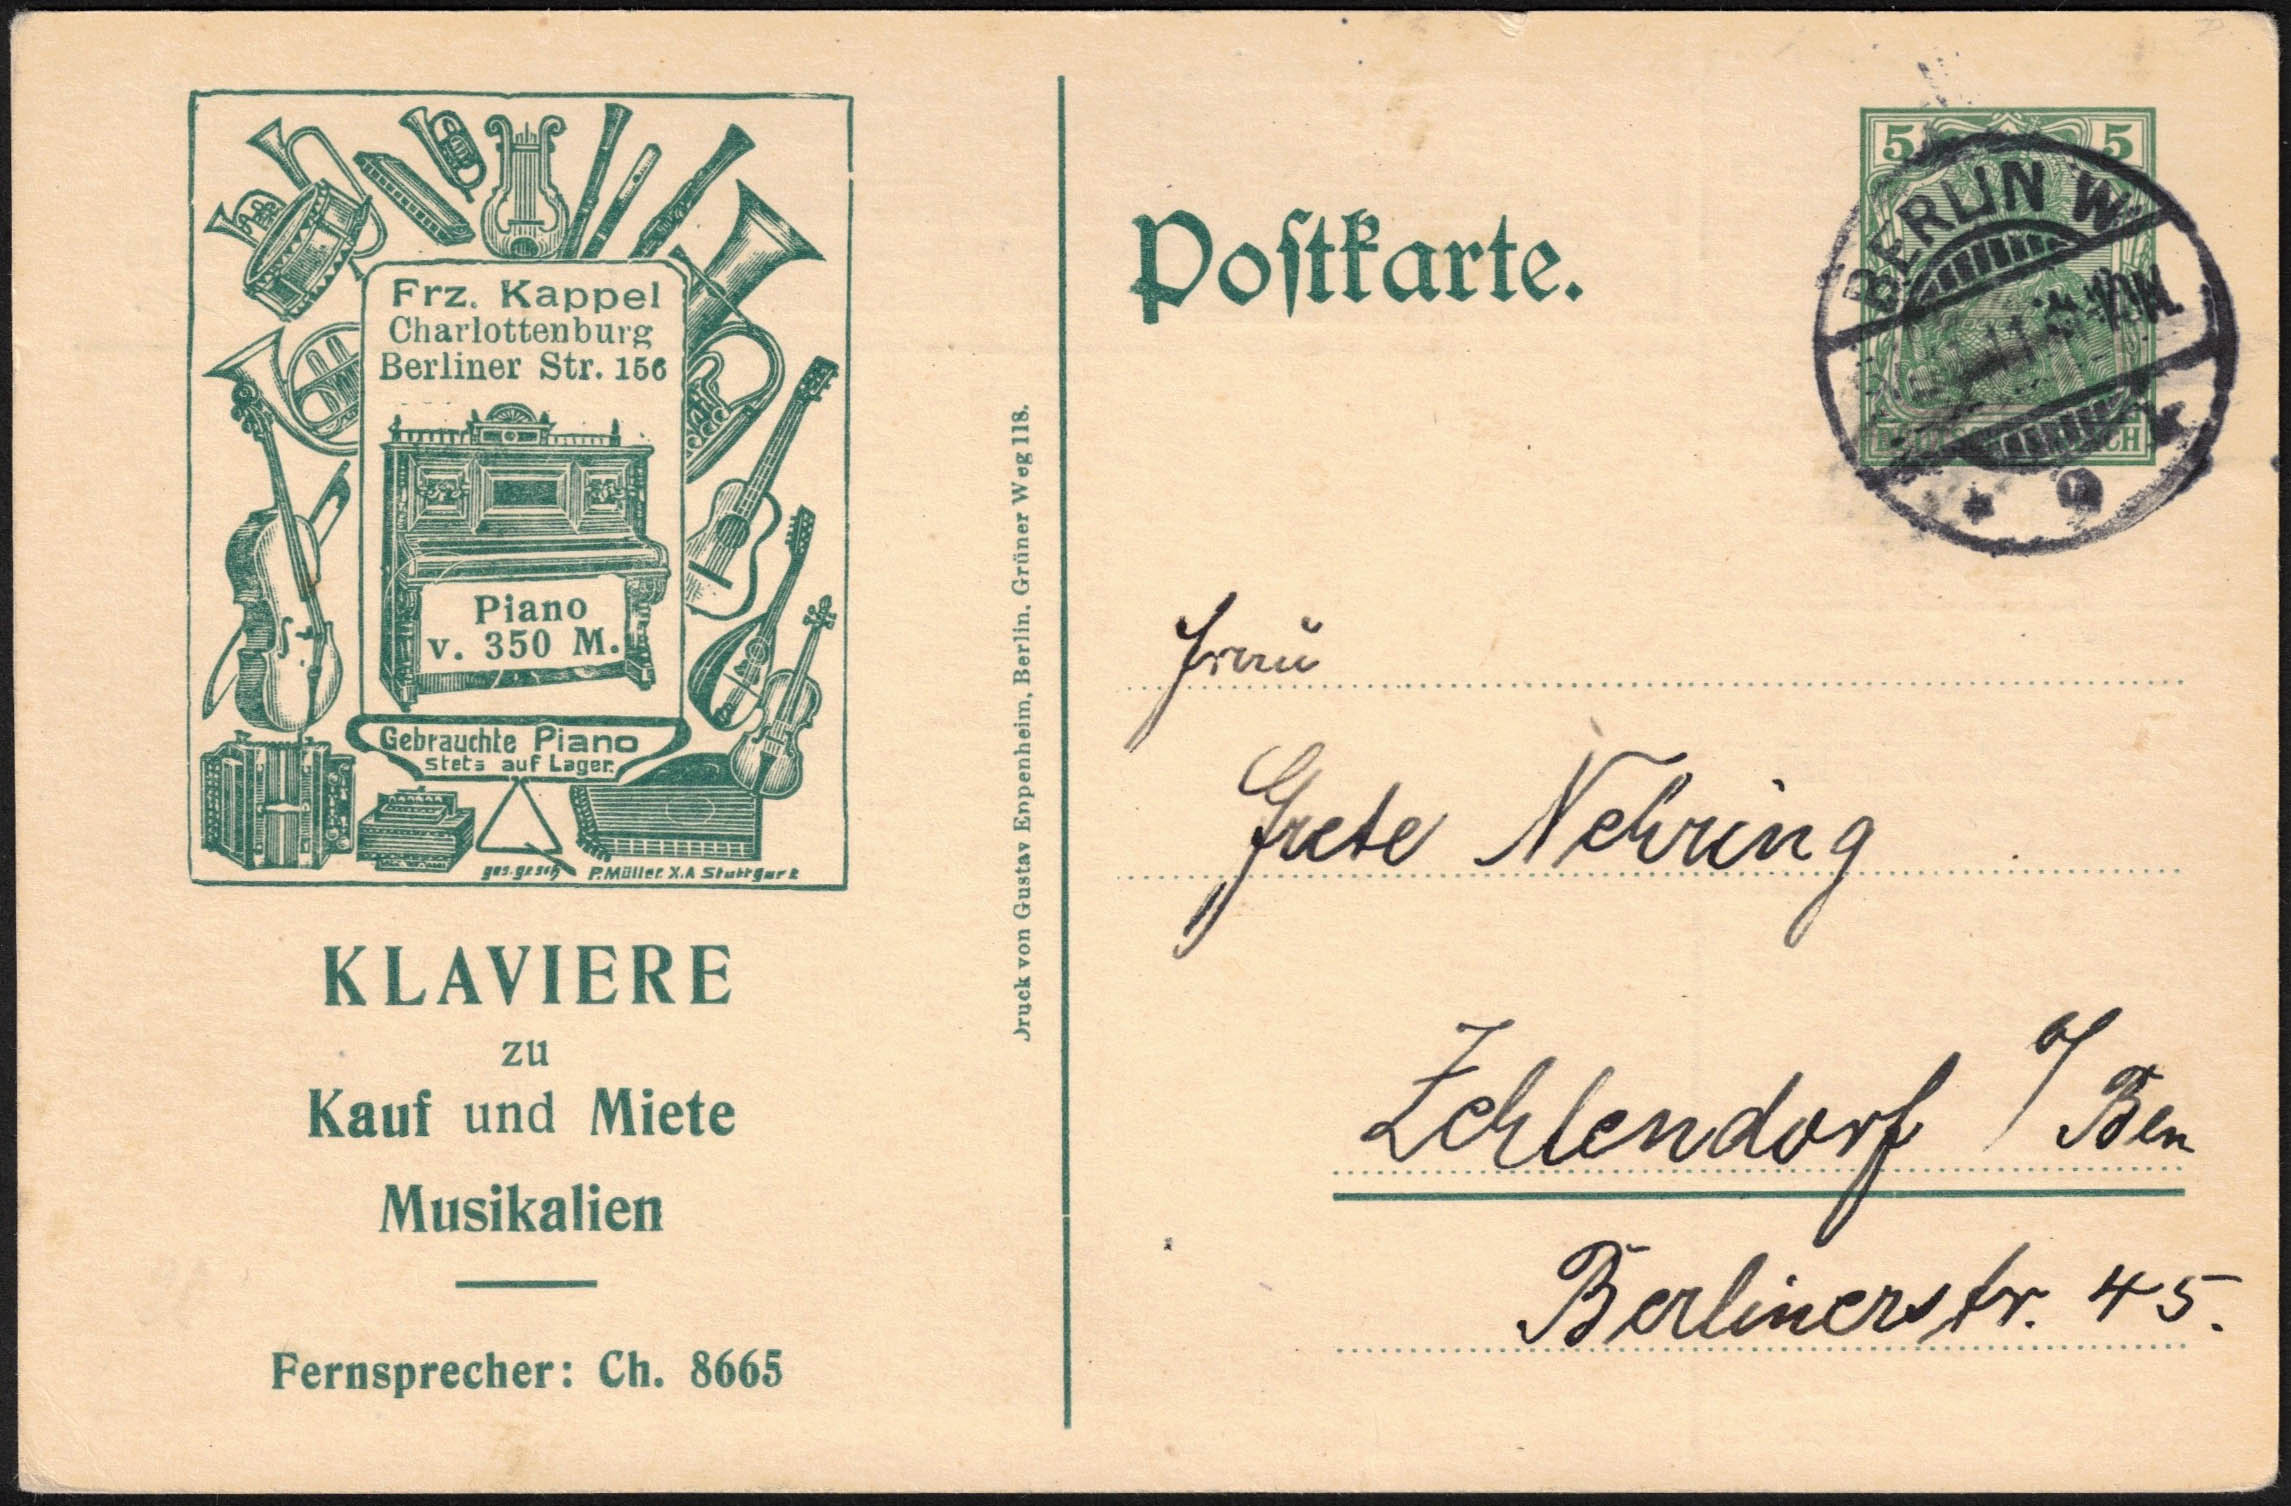 Frz. Kappel
Charlottenburg
Berliner Str. 156
Piano
v. 350 M.
Gebrauchte Piano
stets auf Lager.
ges. gesch P. Müller X.A Stuttgart
KLAVIERE
zu
Kauf und Miete
Musikalien
Fernsprecher: Ch. 8665
Druck von Gustav Enppenheim, Berlin, Grüner Weg 118.
Postkarte.
5 5
BERLIN W
Frau
Grete Nehring
Zehlendorf
Berlinerstr. 45.